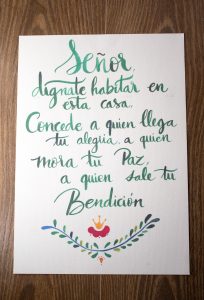 Señor,
dígnate habitar en
esta casa.
Concede a quien llega
tu alegría, a quien
mora tu Paz,
a quien sale tu
Bendición